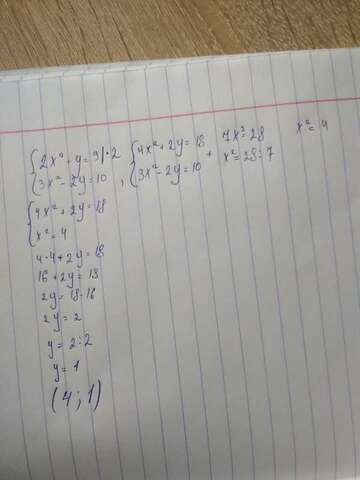 {2x²+y=9|·2
{3x²-2y=10,
{4x²+2y=18
{3x²-2y=10 +
7x²=28
x²=28:7
x²=4
{4x²+2y=18
{x²=4
4·4+2y=18
16+2y=18
2y=18-16
2y=2
y=2:2
y=1
(4;1)